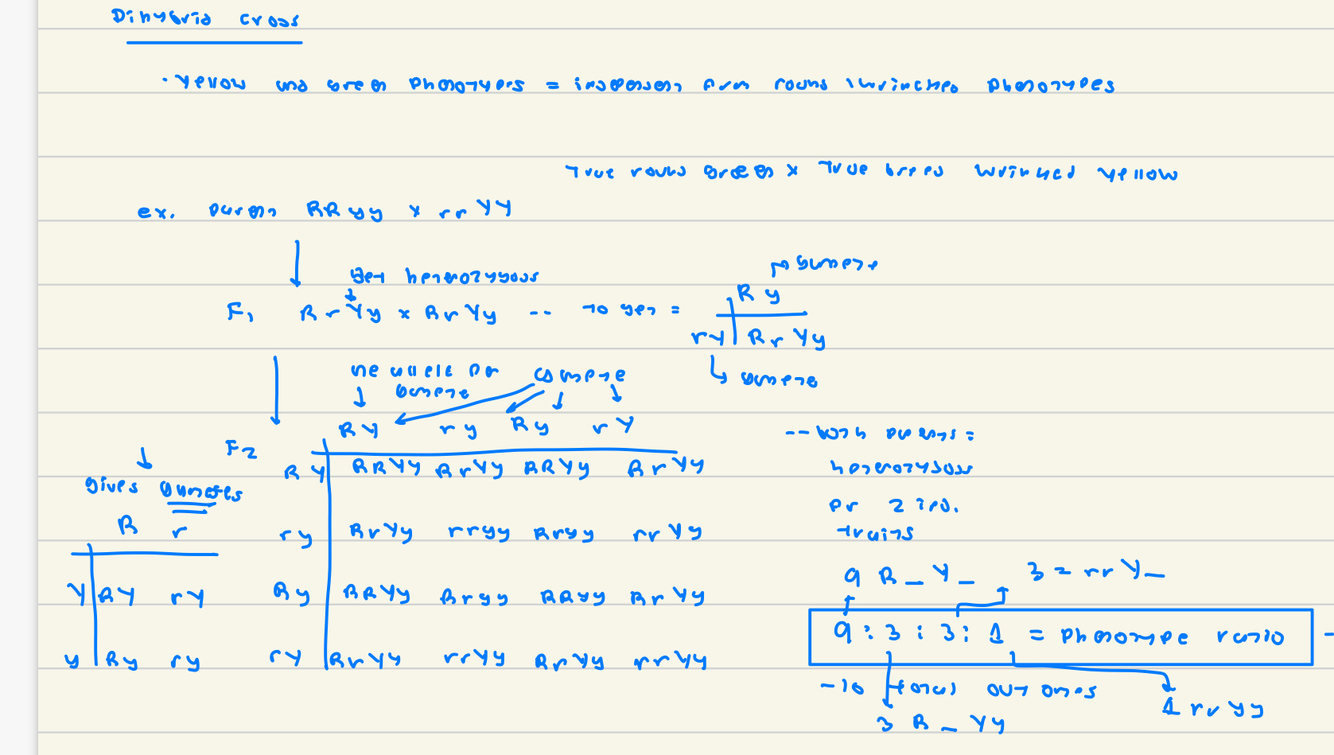 Dihybrid cross
· Yellow and green phenotypes = independent from round / wrinkled phenotypes
True round green x True breed wrinked yellow
ex. parent RRyy x rrYY
get heterozygous
→ gamete
F1 RrYy x RrYy -- to get =
R y
rY | RrYy
↳ gamete
one allele per gamete
gamete
F2
RY ry Ry rY
RY RRYY RrYy RRYy RrYY
ry RrYy rryy Rryy rrYy
Ry RRYy Rryy RRyy RrYy
rY RrYY rrYy RrYy rrYY
gives gametes
R r
Y RY rY
y Ry ry
-- both parents =
heterozygous
for 2 ind.
traits
9 R_Y_
3 = rrY_
9 : 3 : 3 : 1 = phenotype ratio
- 16 total outcomes
3 R_yy
1 rryy